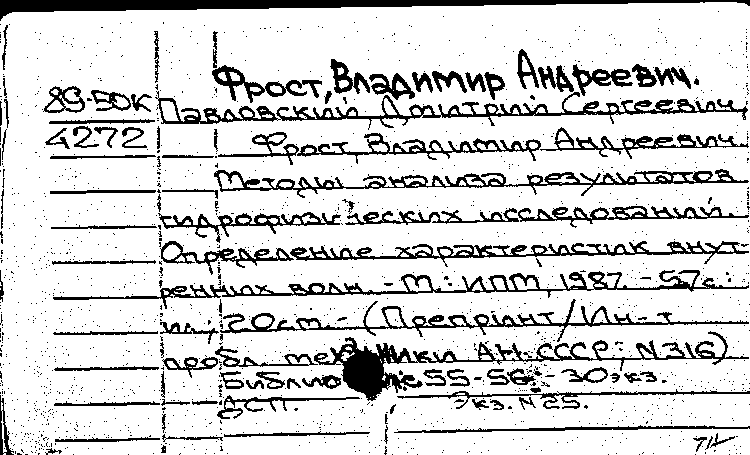 Фрост, Владимир Андреевич.
89-50К Павловский, Дмитрий Сергеевич,
4272 Фрост, Владимир Андреевич.
Методы анализа результатов
гидрофизических исследований.
Определение характеристик внут-
ренних волн. - М.: ИПМ, 1987. - 57 с.:
ил.; 20 см. - (Препринт/Ин-т
пробл. механики АН СССР; N 316)
Библио с. 55-56. - 30 экз.
ДСП. Экз. N 25.